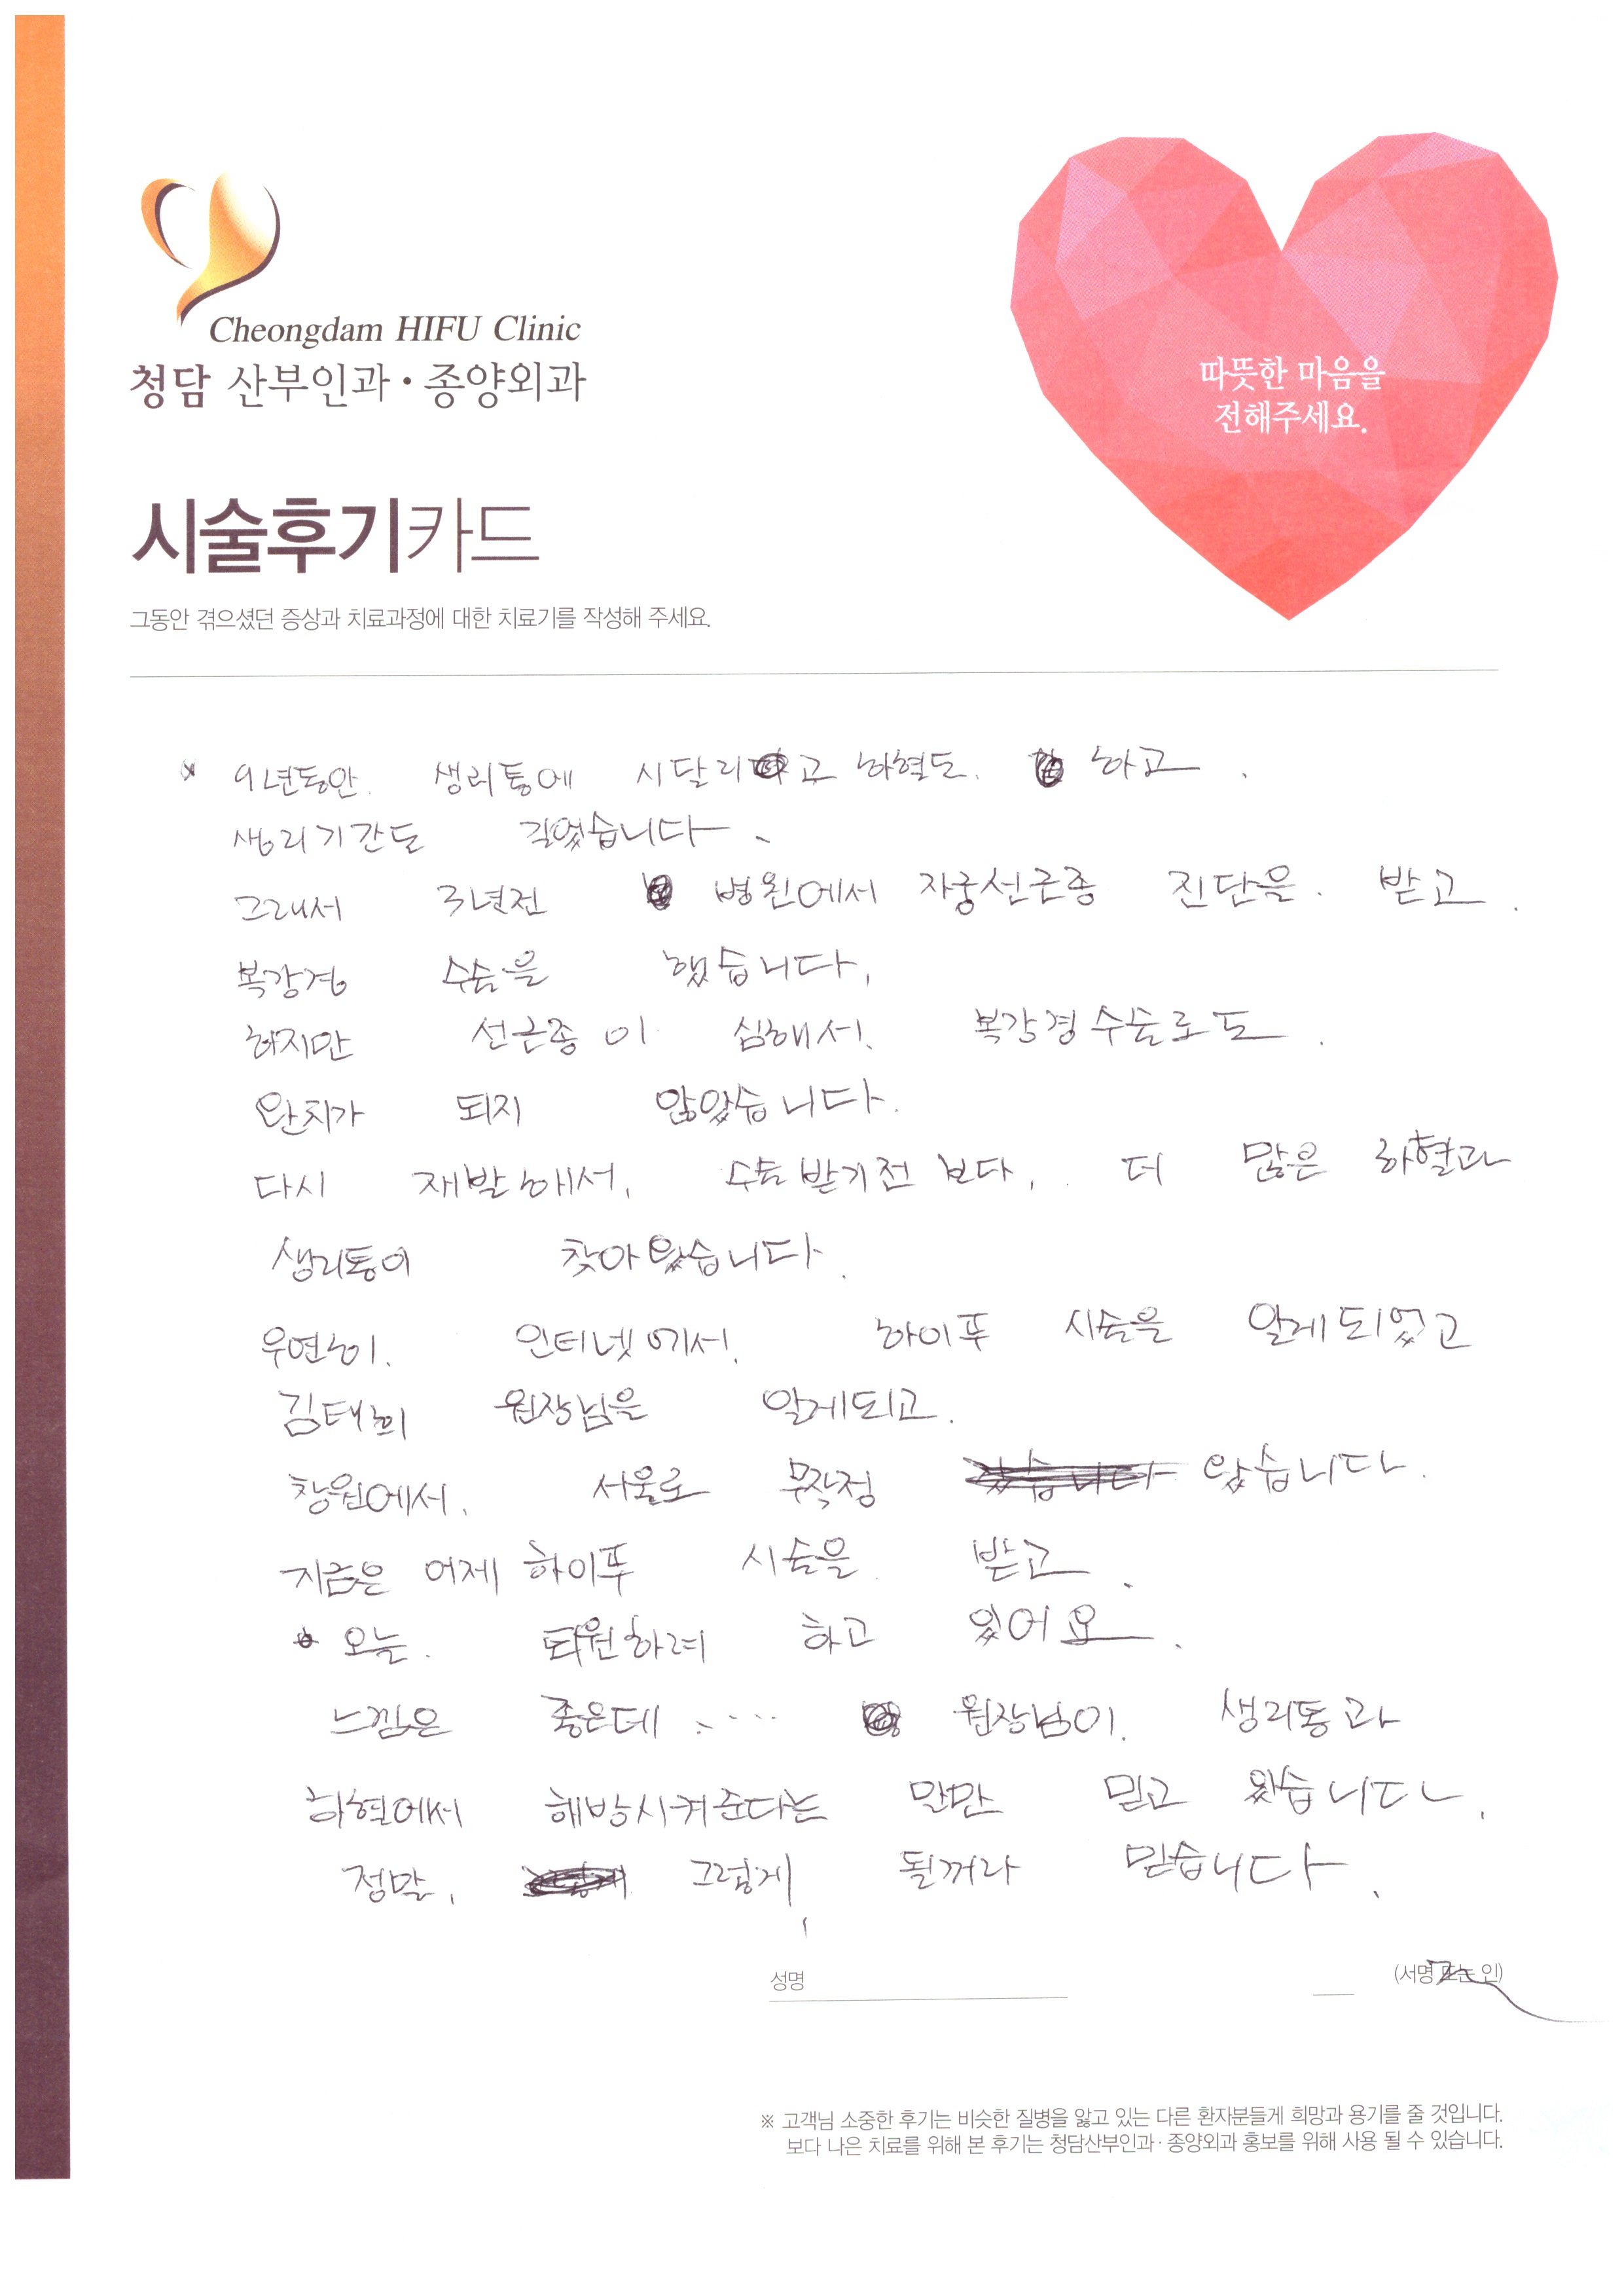 Cheongdam HIFU Clinic
청담 산부인과 · 종양외과
따뜻한 마음을
전해주세요.
시술후기카드
그동안 겪으셨던 증상과 치료과정에 대한 치료기를 작성해 주세요.
* 9년동안. 생리통에 시달리고 하혈도. 하고.
생리기간도 길었습니다.
그래서 3년전 병원에서 자궁선근종 진단을. 받고.
복강경 수술을 했습니다.
하지만 선근종이 심해서. 복강경수술로도.
완치가 되지 않았습니다.
다시 재발해서, 수술받기전 보다, 더 많은 하혈과
생리통이 찾아왔습니다.
우연히. 인터넷에서. 하이푸 시술을 알게되었고
김태희 원장님을 알게되고.
창원에서, 서울로 무작정 왔습니다.
지금은 어제 하이푸 시술을 받고.
* 오늘. 퇴원하려 하고 있어요.
느낌은 좋은데..... 원장님이. 생리통과
하혈에서 해방시켜준다는 말만 믿고 왔습니다.
정말, 그렇게, 될꺼라 믿습니다.
성명 (서명 또는 인)
※ 고객님 소중한 후기는 비슷한 질병을 앓고 있는 다른 환자분들게 희망과 용기를 줄 것입니다.
보다 나은 치료를 위해 본 후기는 청담산부인과 · 종양외과 홍보를 위해 사용 될 수 있습니다.